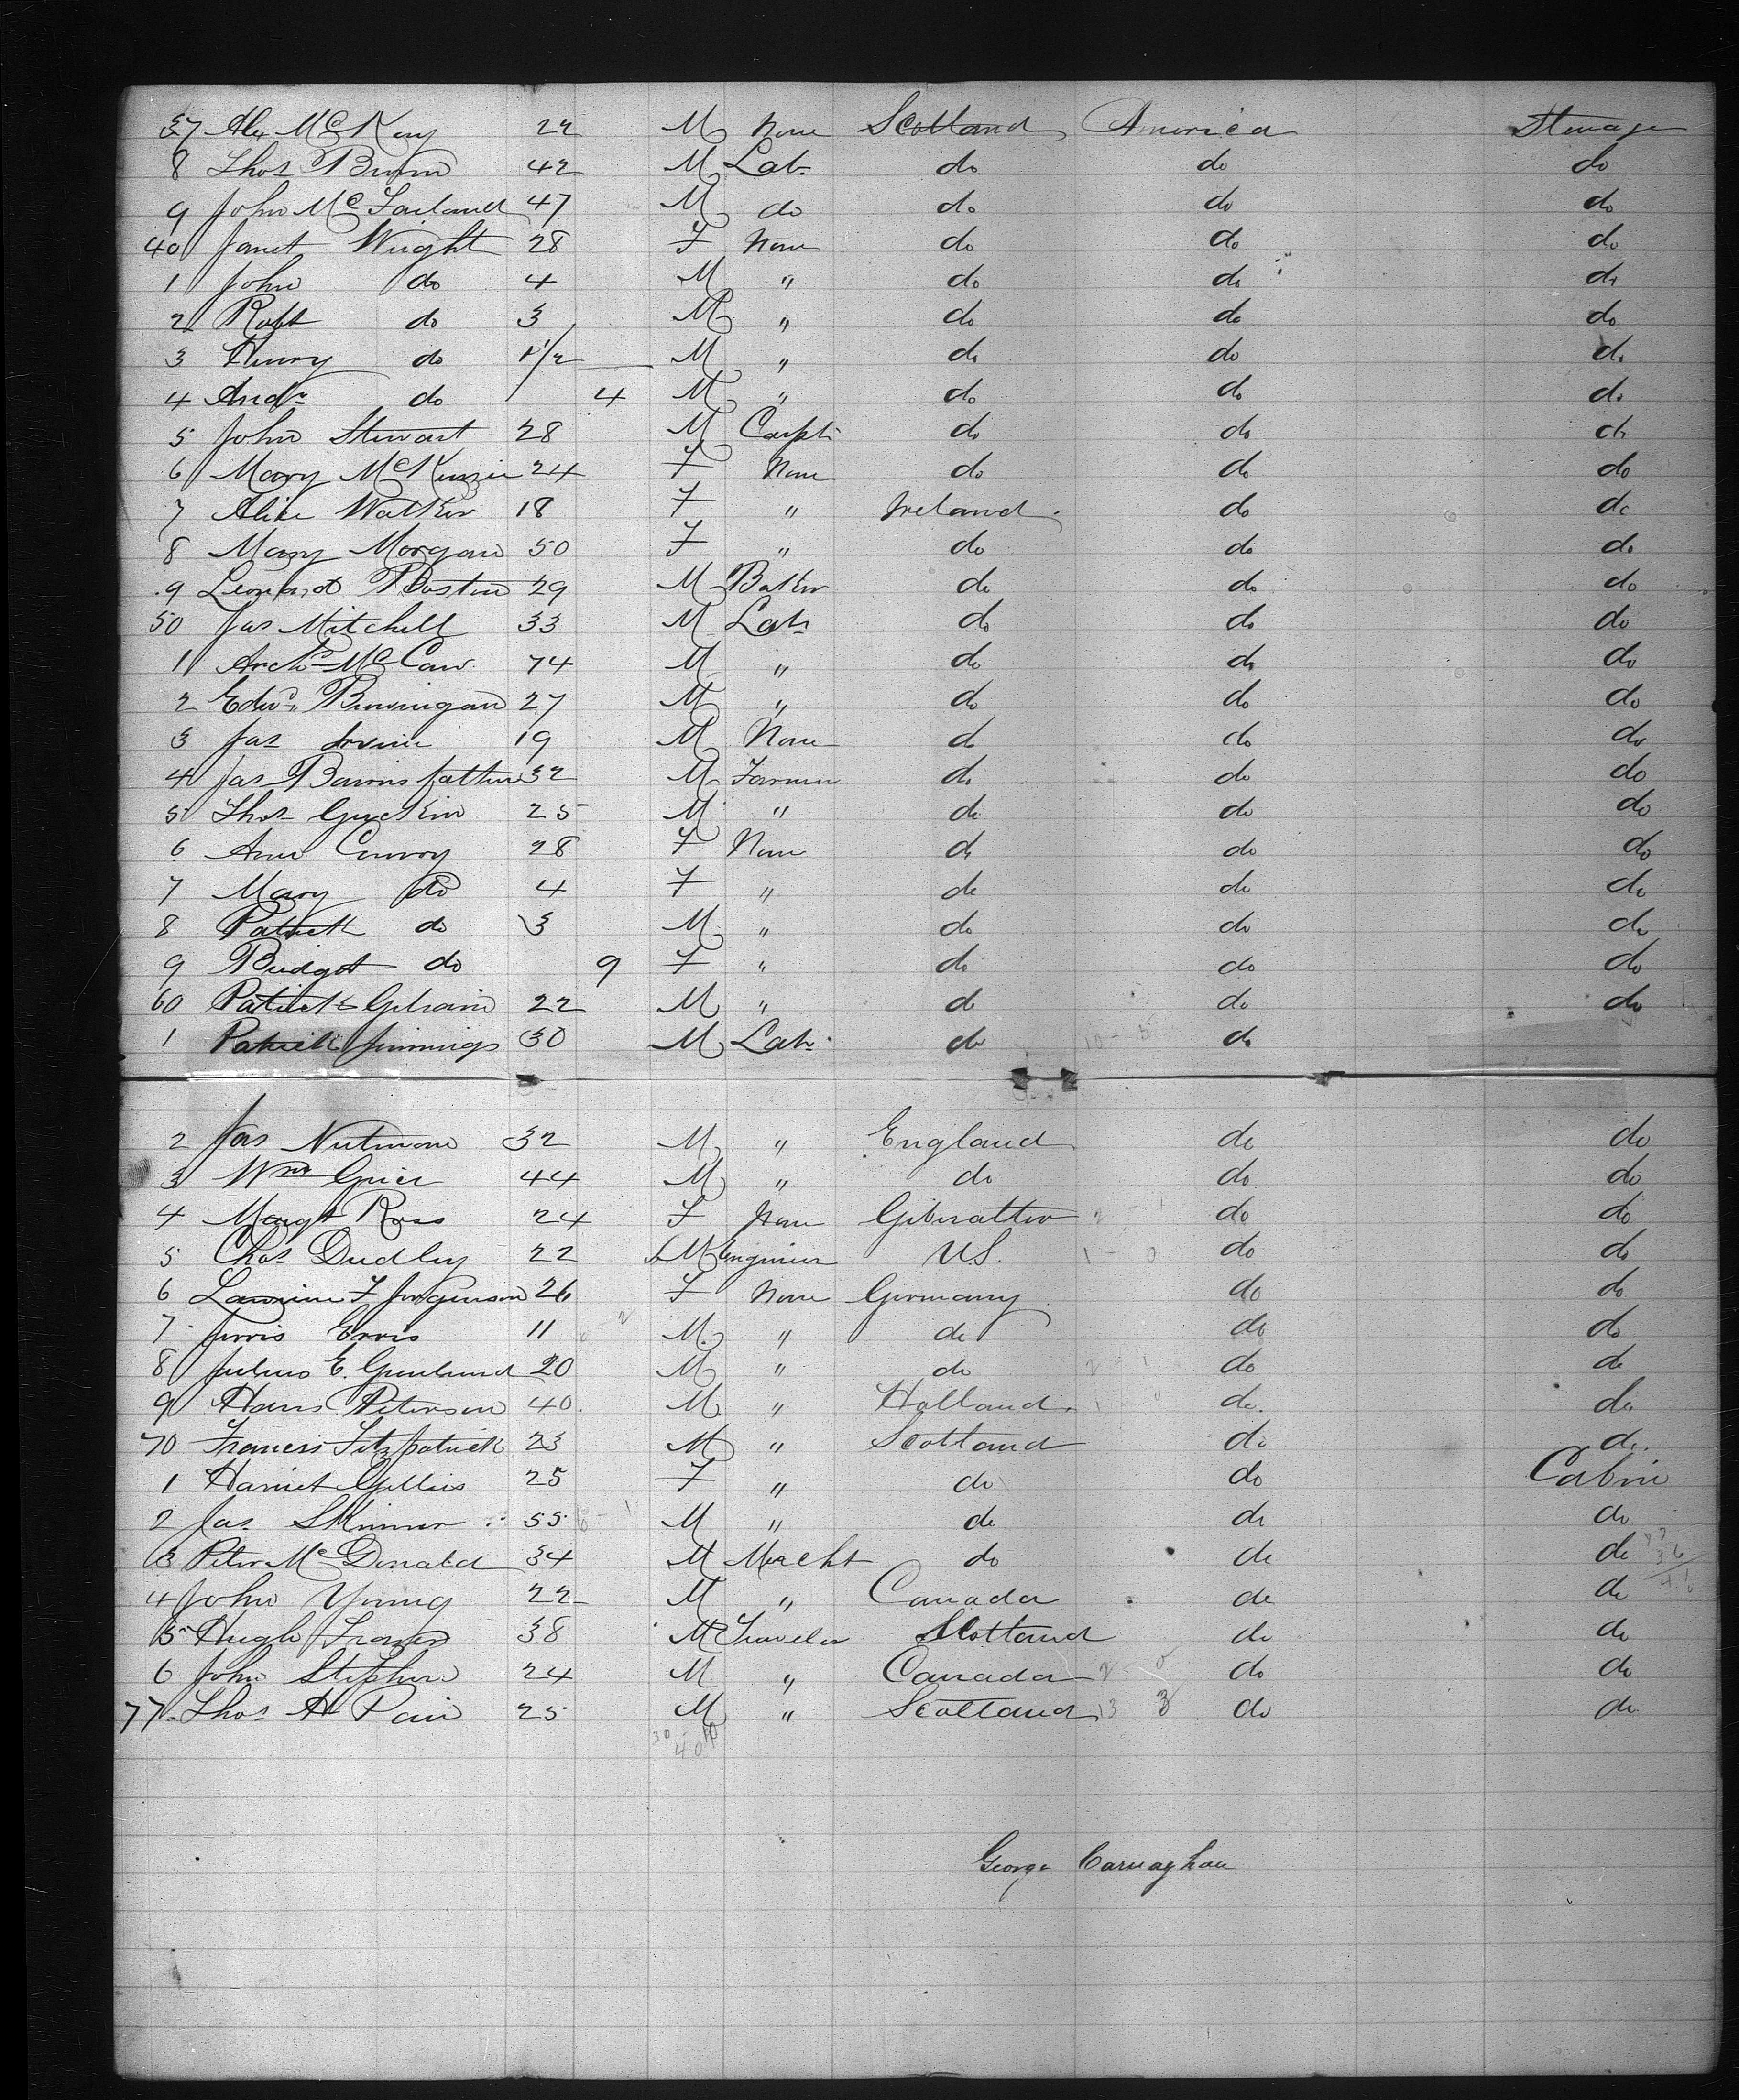 37 Alex McKay 22 M None Scotland America Steerage
8 Thos Brown 42 M Labr do do do
9 John McFarland 47 M do do do do
40 Janet Wright 28 F None do do do
1 John do 4 M " do do do
2 Robt do 3 M " do do do
3 Henry do 1 1/2 M " do do do
4 Andw do 4 M " do do do
5 John Stewart 28 M Carptr do do do
6 Mary McKenzie 24 F None do do do
7 Alice Walker 18 F " Ireland do do
8 Mary Morgan 50 F " do do do
9 Leonard Boston 29 M Baker do do do
50 Jas Mitchell 33 M Labr do do do
1 Archd McCaw 74 M " do do do
2 Edwd 27 M " do do do
3 Jas Irvine 19 M None do do do
4 Jas Barnsfather 32 M Farmer do do do
5 Thos 25 M " do do do
6 Ann Conroy 28 F None do do do
7 Mary do 4 F " do do do
8 Patrick do 3 M " do do do
9 Bridget do 9 F " do do do
60 Patrick 22 M " do do do
1 Patrick Jinnings 30 M Labr do do do
2 Jas 32 M " England do do
3 Wm Grier 44 M " do do do
4 Margt Ross 24 F None Giberalter do do
5 Chas Dudley 22 M Engineer U.S. do do
6 F Jorgenson 26 F None Germany do do
7 11 M " do do do
8 Julius E. 20 M " do do do
9 Hans Peterson 40 M " Holland do do
70 Francis Fitzpatrick 23 M " Scotland do do
1 Harriet Gillies 25 F " do do Cabin
2 Jas Skinner 55 M " do do do
3 Peter McDonald 34 M Mercht do do do
4 John Young 22 M " Canada do do
5 Hugh Fraser 38 M Traveler Scotland do do
6 John Stephen 24 M " Canada do do
77 Thos H Pain 25 M " Scotland do do
George Carnaghan